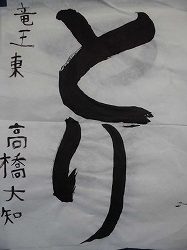 とり
竜王東
高橋大知